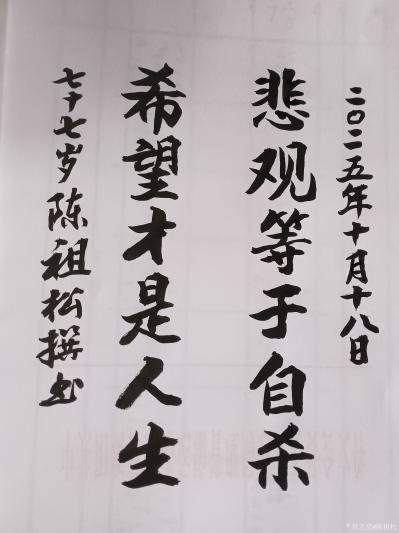 二〇二五年十月十八日
悲观等于自杀
希望才是人生
七十七岁陈祖松撰书